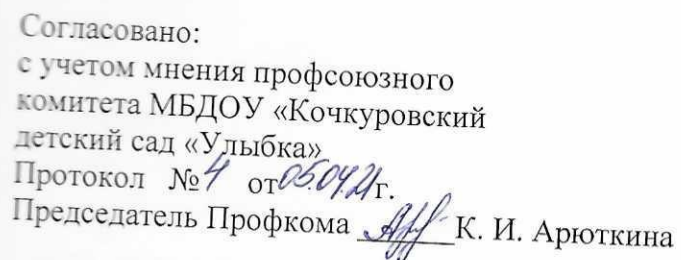 Согласовано:
с учетом мнения профсоюзного
комитета МБДОУ «Кочкуровский
детский сад «Улыбка»
Протокол № 4 от 05.04.21г.
Председатель Профкома ______ К. И. Арюткина